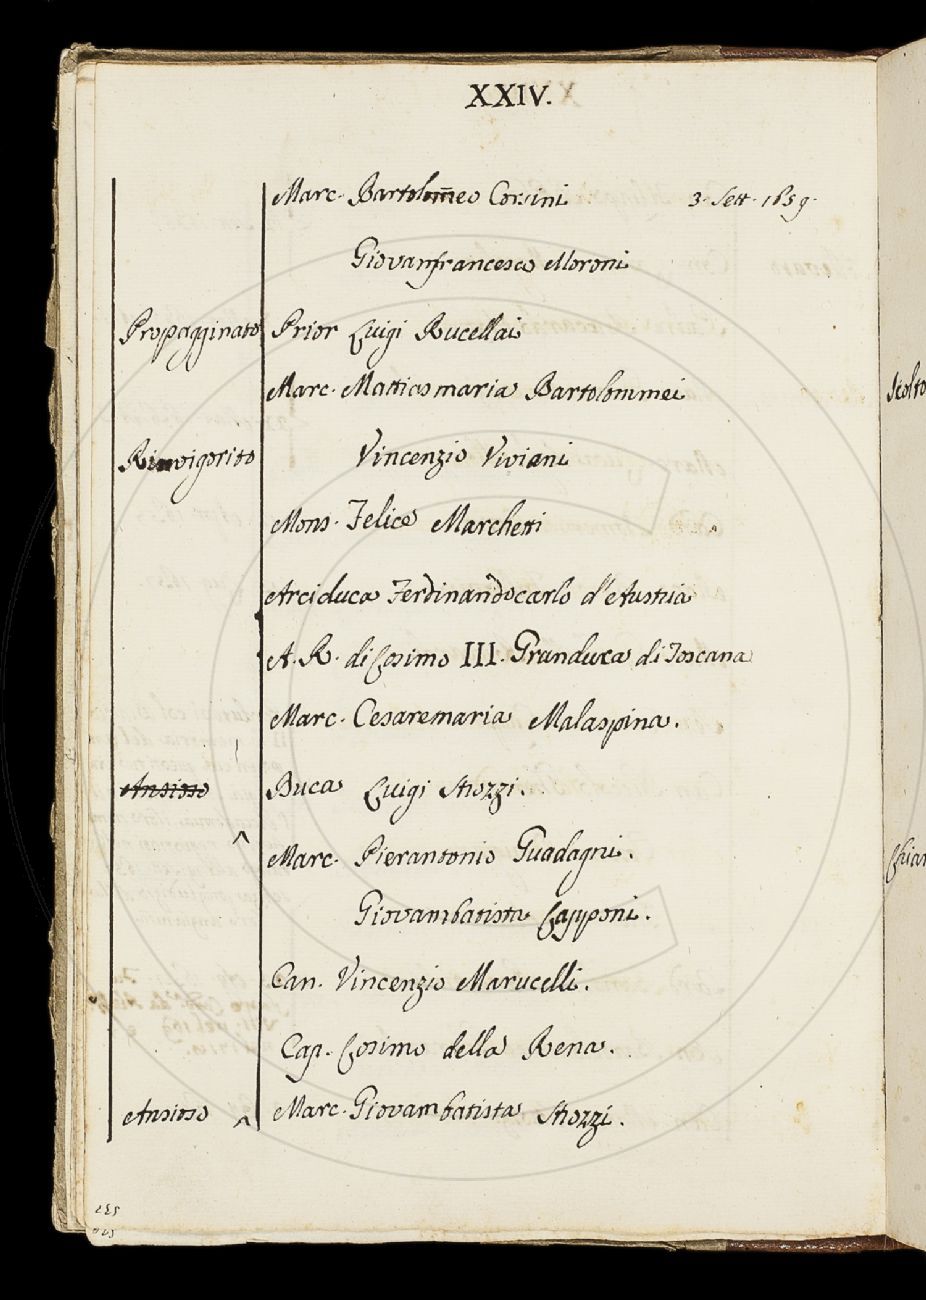 XXIV.
Marc. Bartolom̃eo Corsini 3. Sett. 1659.
Giovanfrancesco Moroni
Propagginato Prior Luigi Rucellai
Marc. Mattiasmaria Bartolommei
Rinvigorito Vincenzio Viviani
Mons. Felice Marchetti
Arciduca Ferdinandocarlo d'Austria
A. R. di Cosimo III. Granduca di Toscana
Marc. Cesaremaria Malaspina.
Ansioso Duca Luigi Strozzi.
^ Marc. Pierantonio Guadagni.
Giovambatista Capponi.
Can. Vincenzio Marucelli.
Cap. Cosimo della Rena.
Ansioso ^ Marc. Giovambatista Strozzi.